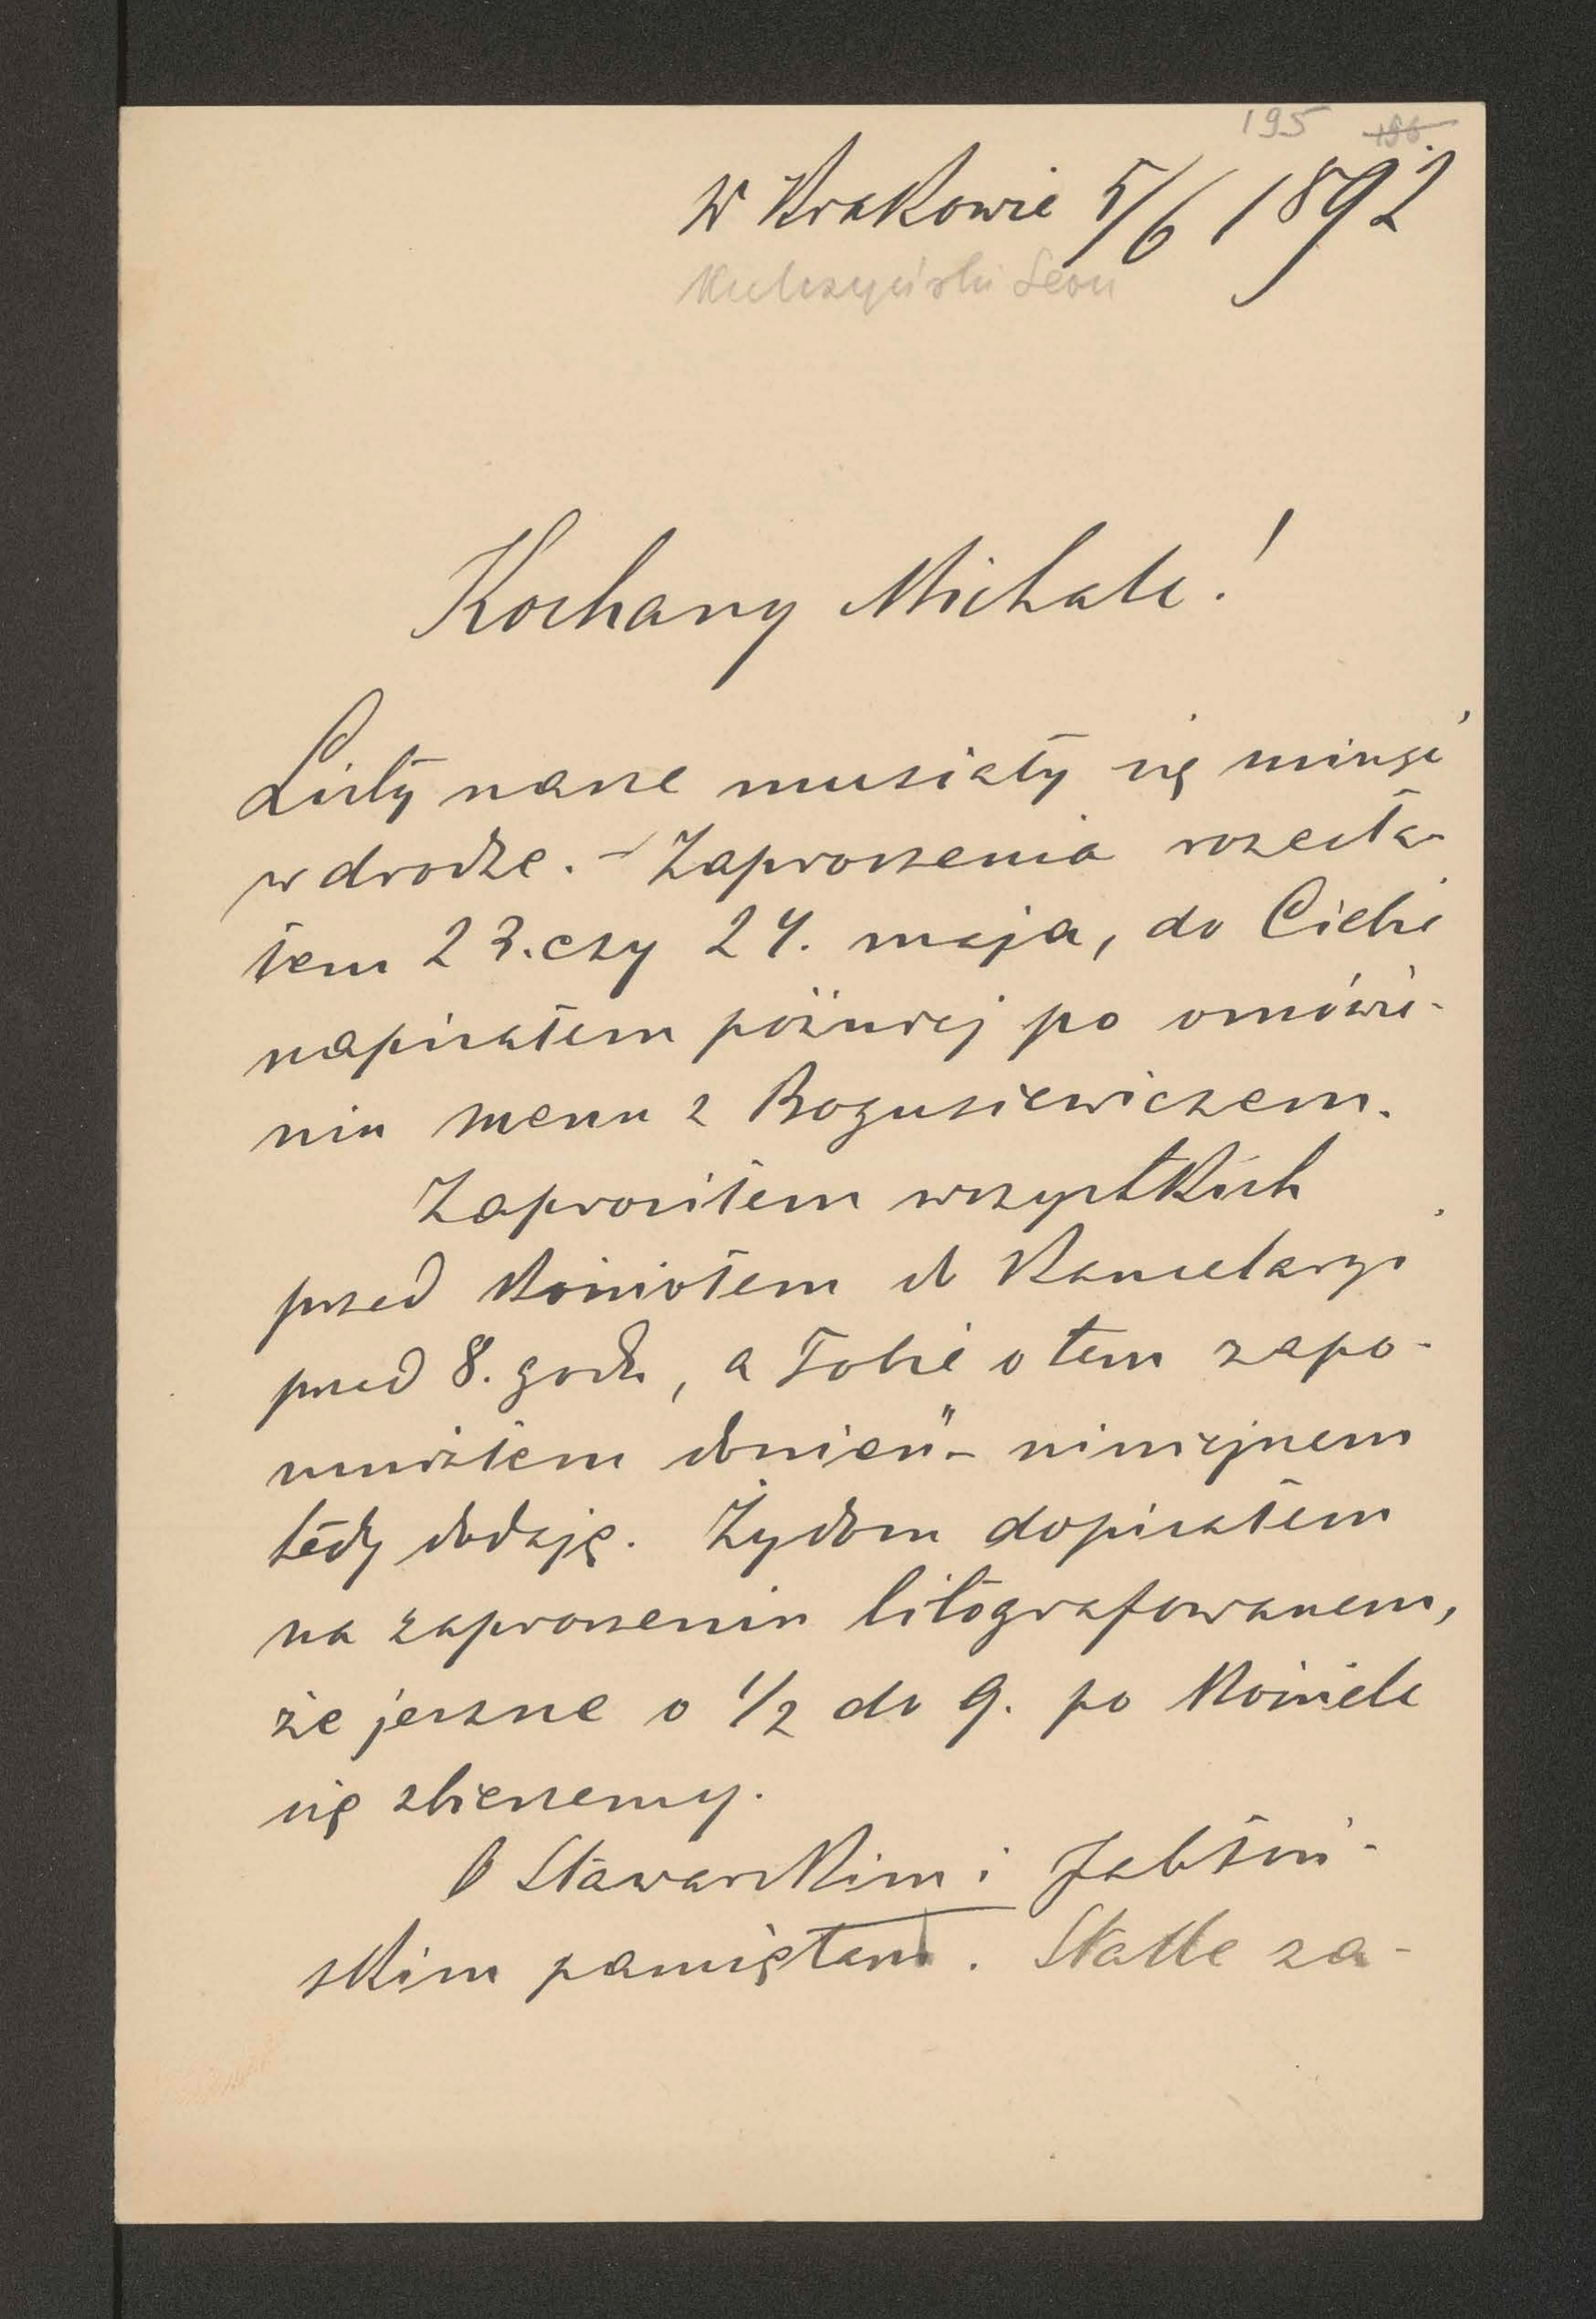 195 196
w Krakowie 5/6 1892
Kulczyński Leon
Kochany Michale!
Listy nasze musiały się minąć
w drodze. – Zaproszenia rozesła-
łem 23. czy 24. maja, do Ciebie
napisałem później po omówie-
niu menu z Bogusiewiczem.
Zaprosiłem wszystkich
przed kościołem do Kancelaryi
przed 8. godz, a Tobie o tem zapo-
mniałem donieść – niniejszem
tedy dodaję. Żydom dopisałem
na zaproszeniu litografowanem,
że jeszcze o 1/2 do 9. po Kościele
się zbierzemy.
O Stawarskim i Jabłoń-
skim pamiętam. Statke za-